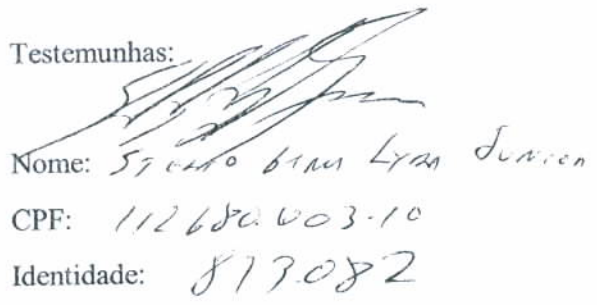 Testemunhas:
Nome: Lyra Junior
CPF: 112680.003-10
Identidade: 873.082